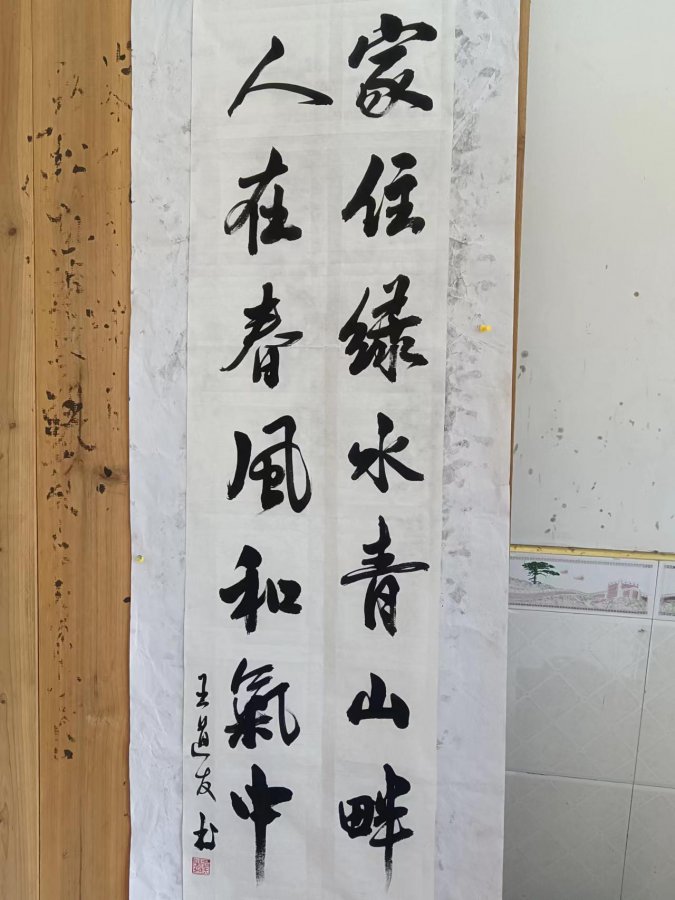 家住绿水青山畔
人在春风和氣中
王道友书